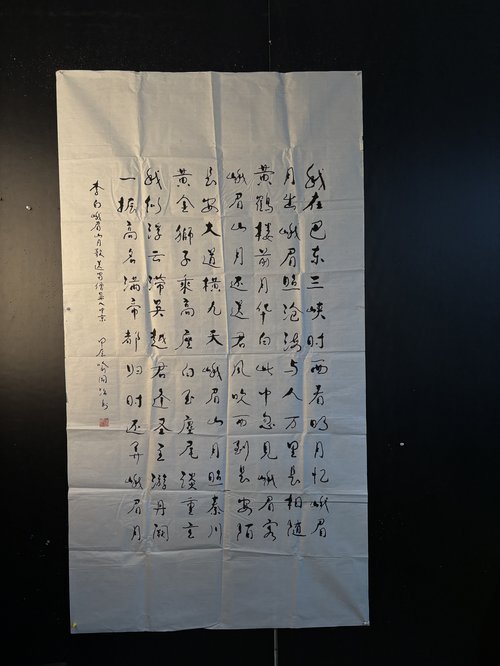 我在巴东三峡时西看明月忆峨眉
月出峨眉照沧海与人万里長相随
黄鶴楼前月华白此中忽见峨眉客
峨眉山月还送君风吹西到長安陌
長安大道横九天峨眉山月照秦川
黄金獅子乘高座白玉塵尾談重玄
我似浮云滞吴越君逢圣主游丹阙
一振高名满帝都归时还弄峨眉月
李白峨眉山月歌送蜀僧晏入中京 甲辰